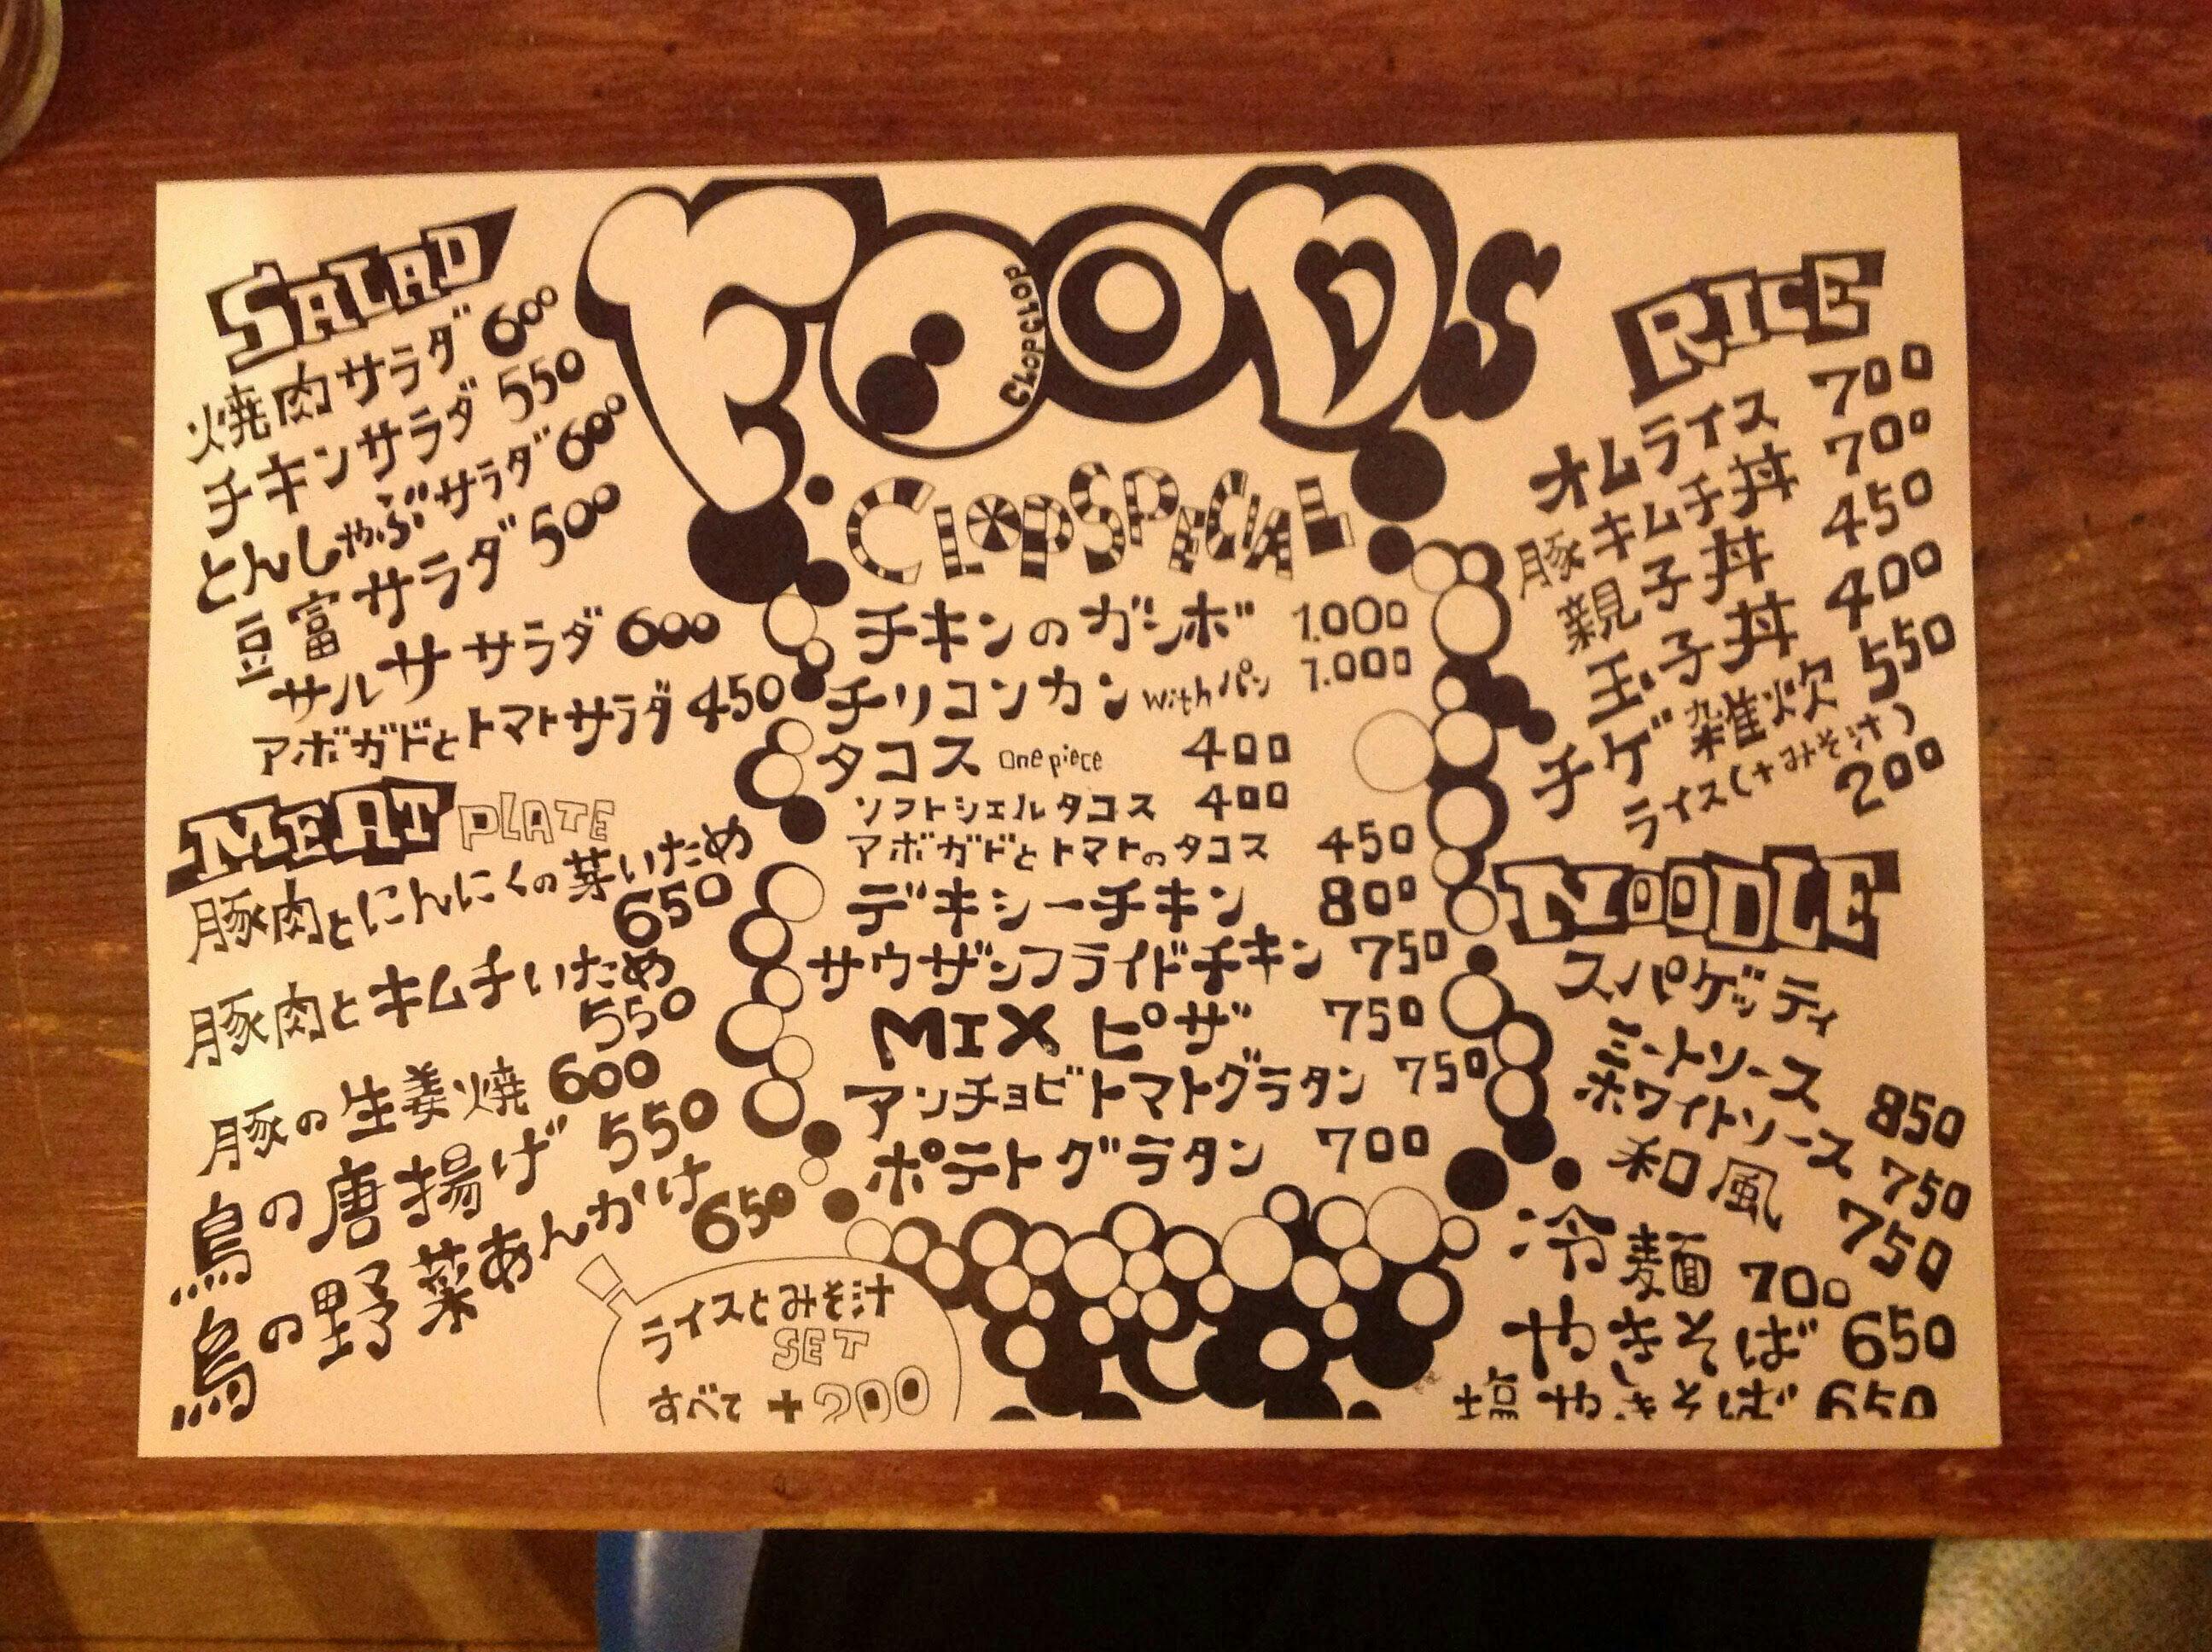 FOODs
CLOP CLOP
SALAD
焼肉サラダ 600
チキンサラダ 550
とんしゃぶサラダ 600
豆富サラダ 500
サルササラダ 600
アボガドとトマトサラダ 450
MEAT PLATE
豚肉とにんにくの芽いため
650
豚肉とキムチいため
550
豚の生姜焼 600
鳥の唐揚げ 550
鳥の野菜あんかけ
650
ライスとみそ汁
SET
すべて +200
CLOP SPECIAL
チキンのガンボ 1.000
チリコンカン with パン 1.000
タコス One piece 400
ソフトシェルタコス 400
アボガドとトマトのタコス 450
デキシーチキン 800
サウザンフライドチキン 750
MIX ピザ 750
アンチョビトマトグラタン 750
ポテトグラタン 700
RICE
オムライス 700
豚キムチ丼 700
親子丼 450
玉子丼 400
チゲ雑炊 550
ライス(+みそ汁)
200
NOODLE
スパゲッティ
ミートソース 850
ホワイトソース 750
和風 750
冷麺 700
やきそば 650
塩やきそば 650